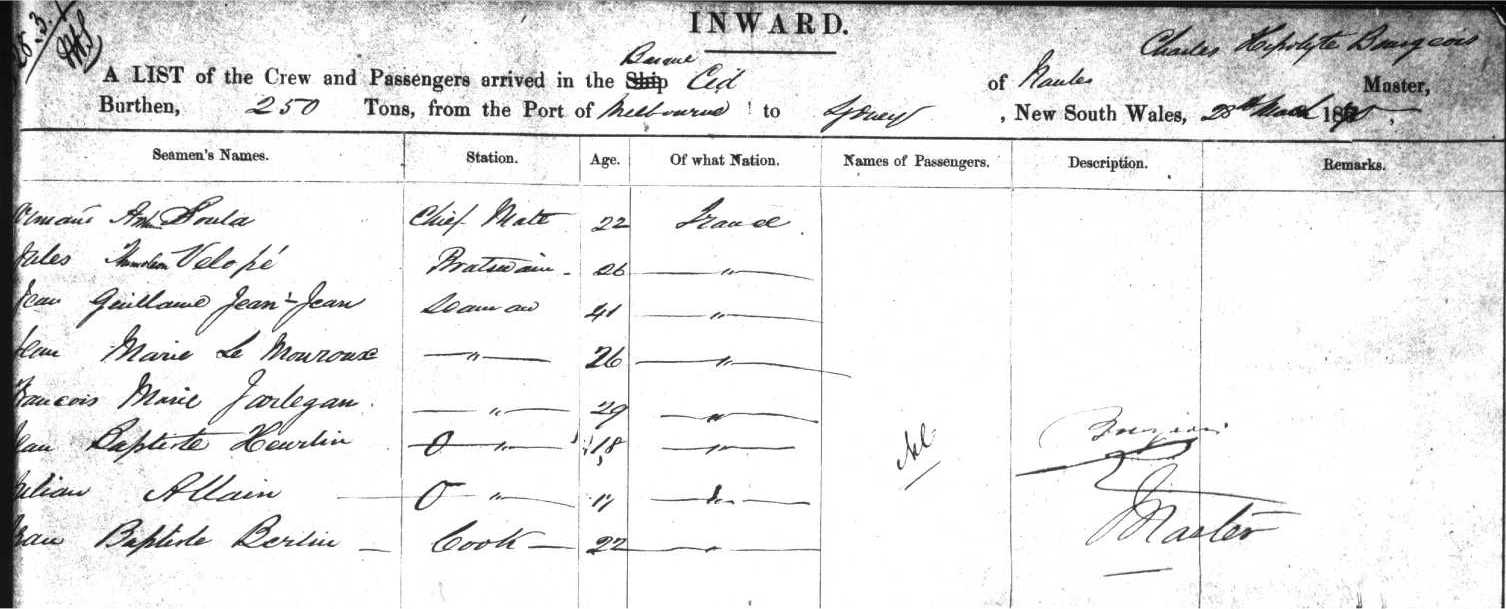 28.3.
INWARD.
Charles Hipolyte Bourgeois
Barque
A LIST of the Crew and Passengers arrived in the Ship Cid of Nantes Master,
Burthen, 250 Tons, from the Port of Melbourne to Sydney, New South Wales, 28th March 1870,
Seamen's Names. Station. Age. Of what Nation. Names of Passengers. Description. Remarks.
Soula Chief Mate 22 France
Jules Velopé Boatswain 26 "
Jean Guillaume Jean-Jean Seaman 41 "
Jean Marie Le Mouroux " 26 "
Francois Marie Jarlegan. " 29 "
Jean Baptiste Heurlin O " 18 "
Julian Allain O " 17 "
Jean Baptiste Berlin Cook 22 "
Nil
Bourgeois
Master